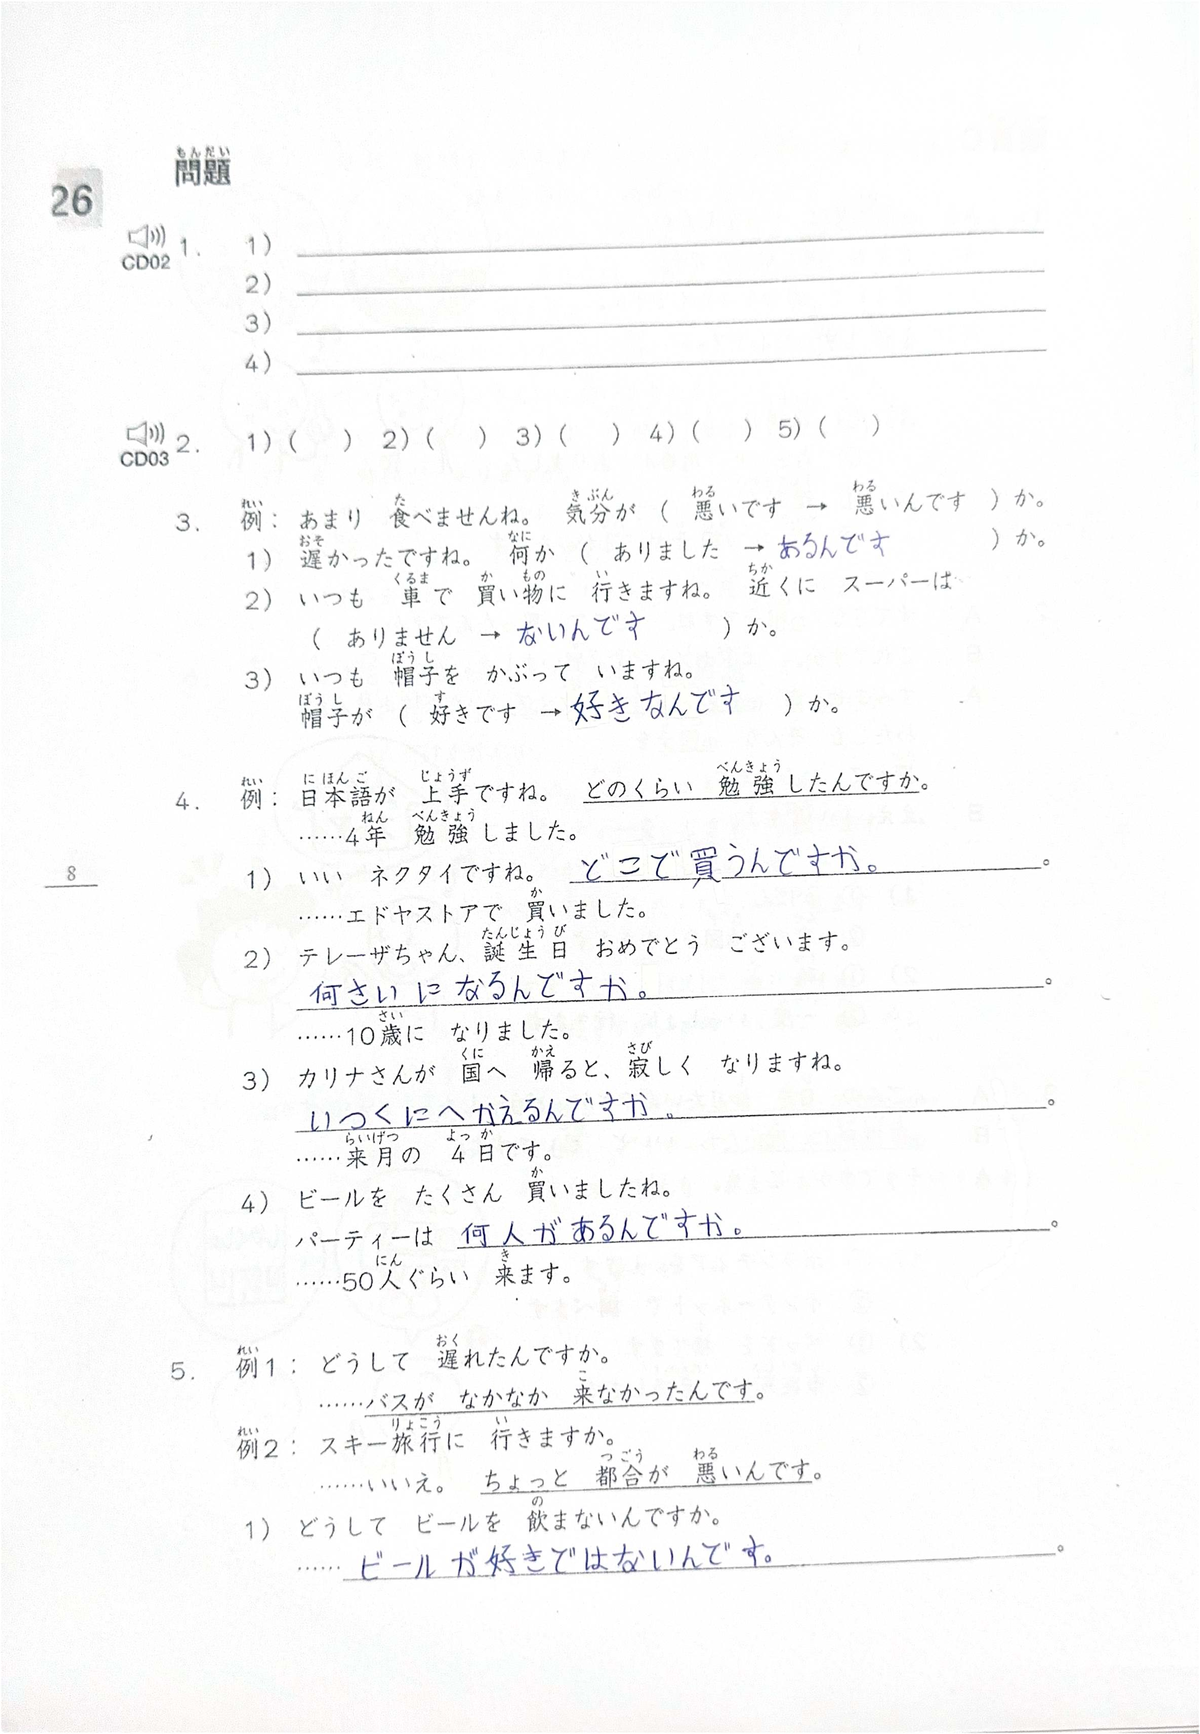 もんだい
問題
26
CD02 1. 1)
2)
3)
4)
CD03 2. 1)( ) 2)( ) 3)( ) 4)( ) 5)( )
れい た きぶん わる わる
3. 例: あまり 食べませんね。 気分が ( 悪いです → 悪いんです )か。
おそ なに
1) 遅かったですね。 何か ( ありました → あるんです )か。
くるま か もの い ちか
2) いつも 車で 買い物に 行きますね。 近くに スーパーは
( ありません → ないんです )か。
ぼうし
3) いつも 帽子を かぶって いますね。
ぼうし す
帽子が ( 好きです → 好きなんです )か。
れい にほんご じょうず べんきょう
4. 例: 日本語が 上手ですね。 どのくらい 勉強したんですか。
ねん べんきょう
……4年 勉強しました。
1) いい ネクタイですね。 どこで買うんですか。。
か
……エドヤストアで 買いました。
たんじょうび
2) テレーザちゃん、誕生日 おめでとう ございます。
何さいになるんですか。。
さい
……10歳に なりました。
くに かえ さび
3) カリナさんが 国へ 帰ると、寂しく なりますね。
いつくにへかえるんですか。。
らいげつ よっか
……来月の 4日です。
か
4) ビールを たくさん 買いましたね。
パーティーは 何人があるんですか。。
にん き
……50人ぐらい 来ます。
れい おく
5. 例1: どうして 遅れたんですか。
こ
……バスが なかなか 来なかったんです。
れい りょこう い
例2: スキー旅行に 行きますか。
つごう わる
……いいえ。 ちょっと 都合が 悪いんです。
の
1) どうして ビールを 飲まないんですか。
……ビールが好きではないんです。。
8